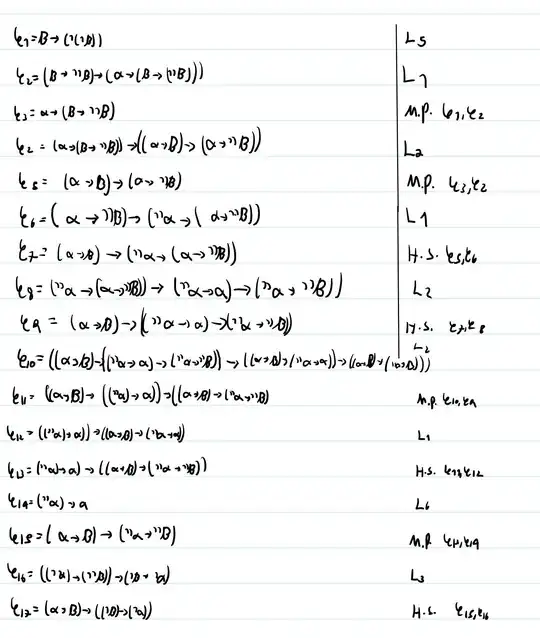 φ1 = B → (¬(¬B)) L5
φ2 = (B → ¬¬B) → (α → (B → (¬¬B))) L1
φ3 = α → (B → ¬¬B) M.P. φ1, φ2
φ2 = (α → (B → ¬¬B)) → ((α → B) → (α → ¬¬B)) L2
φ5 = (α → B) → (α → ¬¬B) M.P. φ3, φ2
φ6 = (α → ¬¬B) → (¬¬α → (α → ¬¬B)) L1
φ7 = (α → B) → (¬¬α → (α → ¬¬B)) H.S. φ5, φ6
φ8 = (¬¬α → (α → ¬¬B)) → (¬¬α → α) → (¬¬α → ¬¬B)) L2
φ9 = (α → B) → ((¬¬α → α) → (¬¬α → ¬¬B)) H.S. φ7, φ8
φ10 = ((α → B) → ((¬¬α → α) → (¬¬α → ¬¬B)) → ((α → B) → (¬¬α → α)) → ((α → B) → (¬¬α → ¬¬B))) L2
φ11 = ((α → B) → ((¬¬α) → α)) → ((α → B) → (¬¬α → ¬¬B) M.P. φ10, φ9
φ12 = ((¬¬α) → α)) → ((α → B) → (¬¬α → α)) L1
φ13 = (¬¬α) → α) → ((α → B) → (¬¬α → ¬¬B)) H.S. φ11, φ12
φ14 = (¬¬α) → α L6
φ15 = (α → B) → (¬¬α → ¬¬B) M.P. φ14
φ16 = ((¬¬α) → (¬¬B)) → (¬B → ¬α) L3
φ17 = (α → B) → ((¬B) → (¬α)) H.S. φ15, φ16